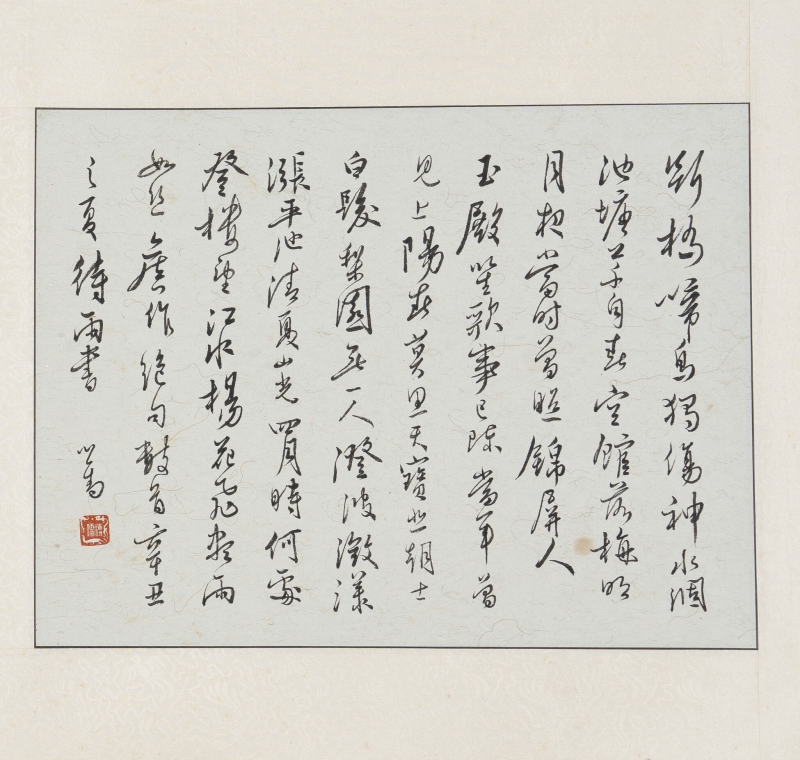 斷橋啼鳥獨傷神水涸
池塘草自春空館落梅明
月夜當時曾照錦屏人
玉殿笙歌事已陳當年曾
見上陽春莫思天寶朝士
白髮梨園無一人澄波瀲漾
漲平池清夏山光四月時何處
登樓望江水楊花飛盡雨
如絲舊作絕句數首辛丑
之夏待雨書 心畬